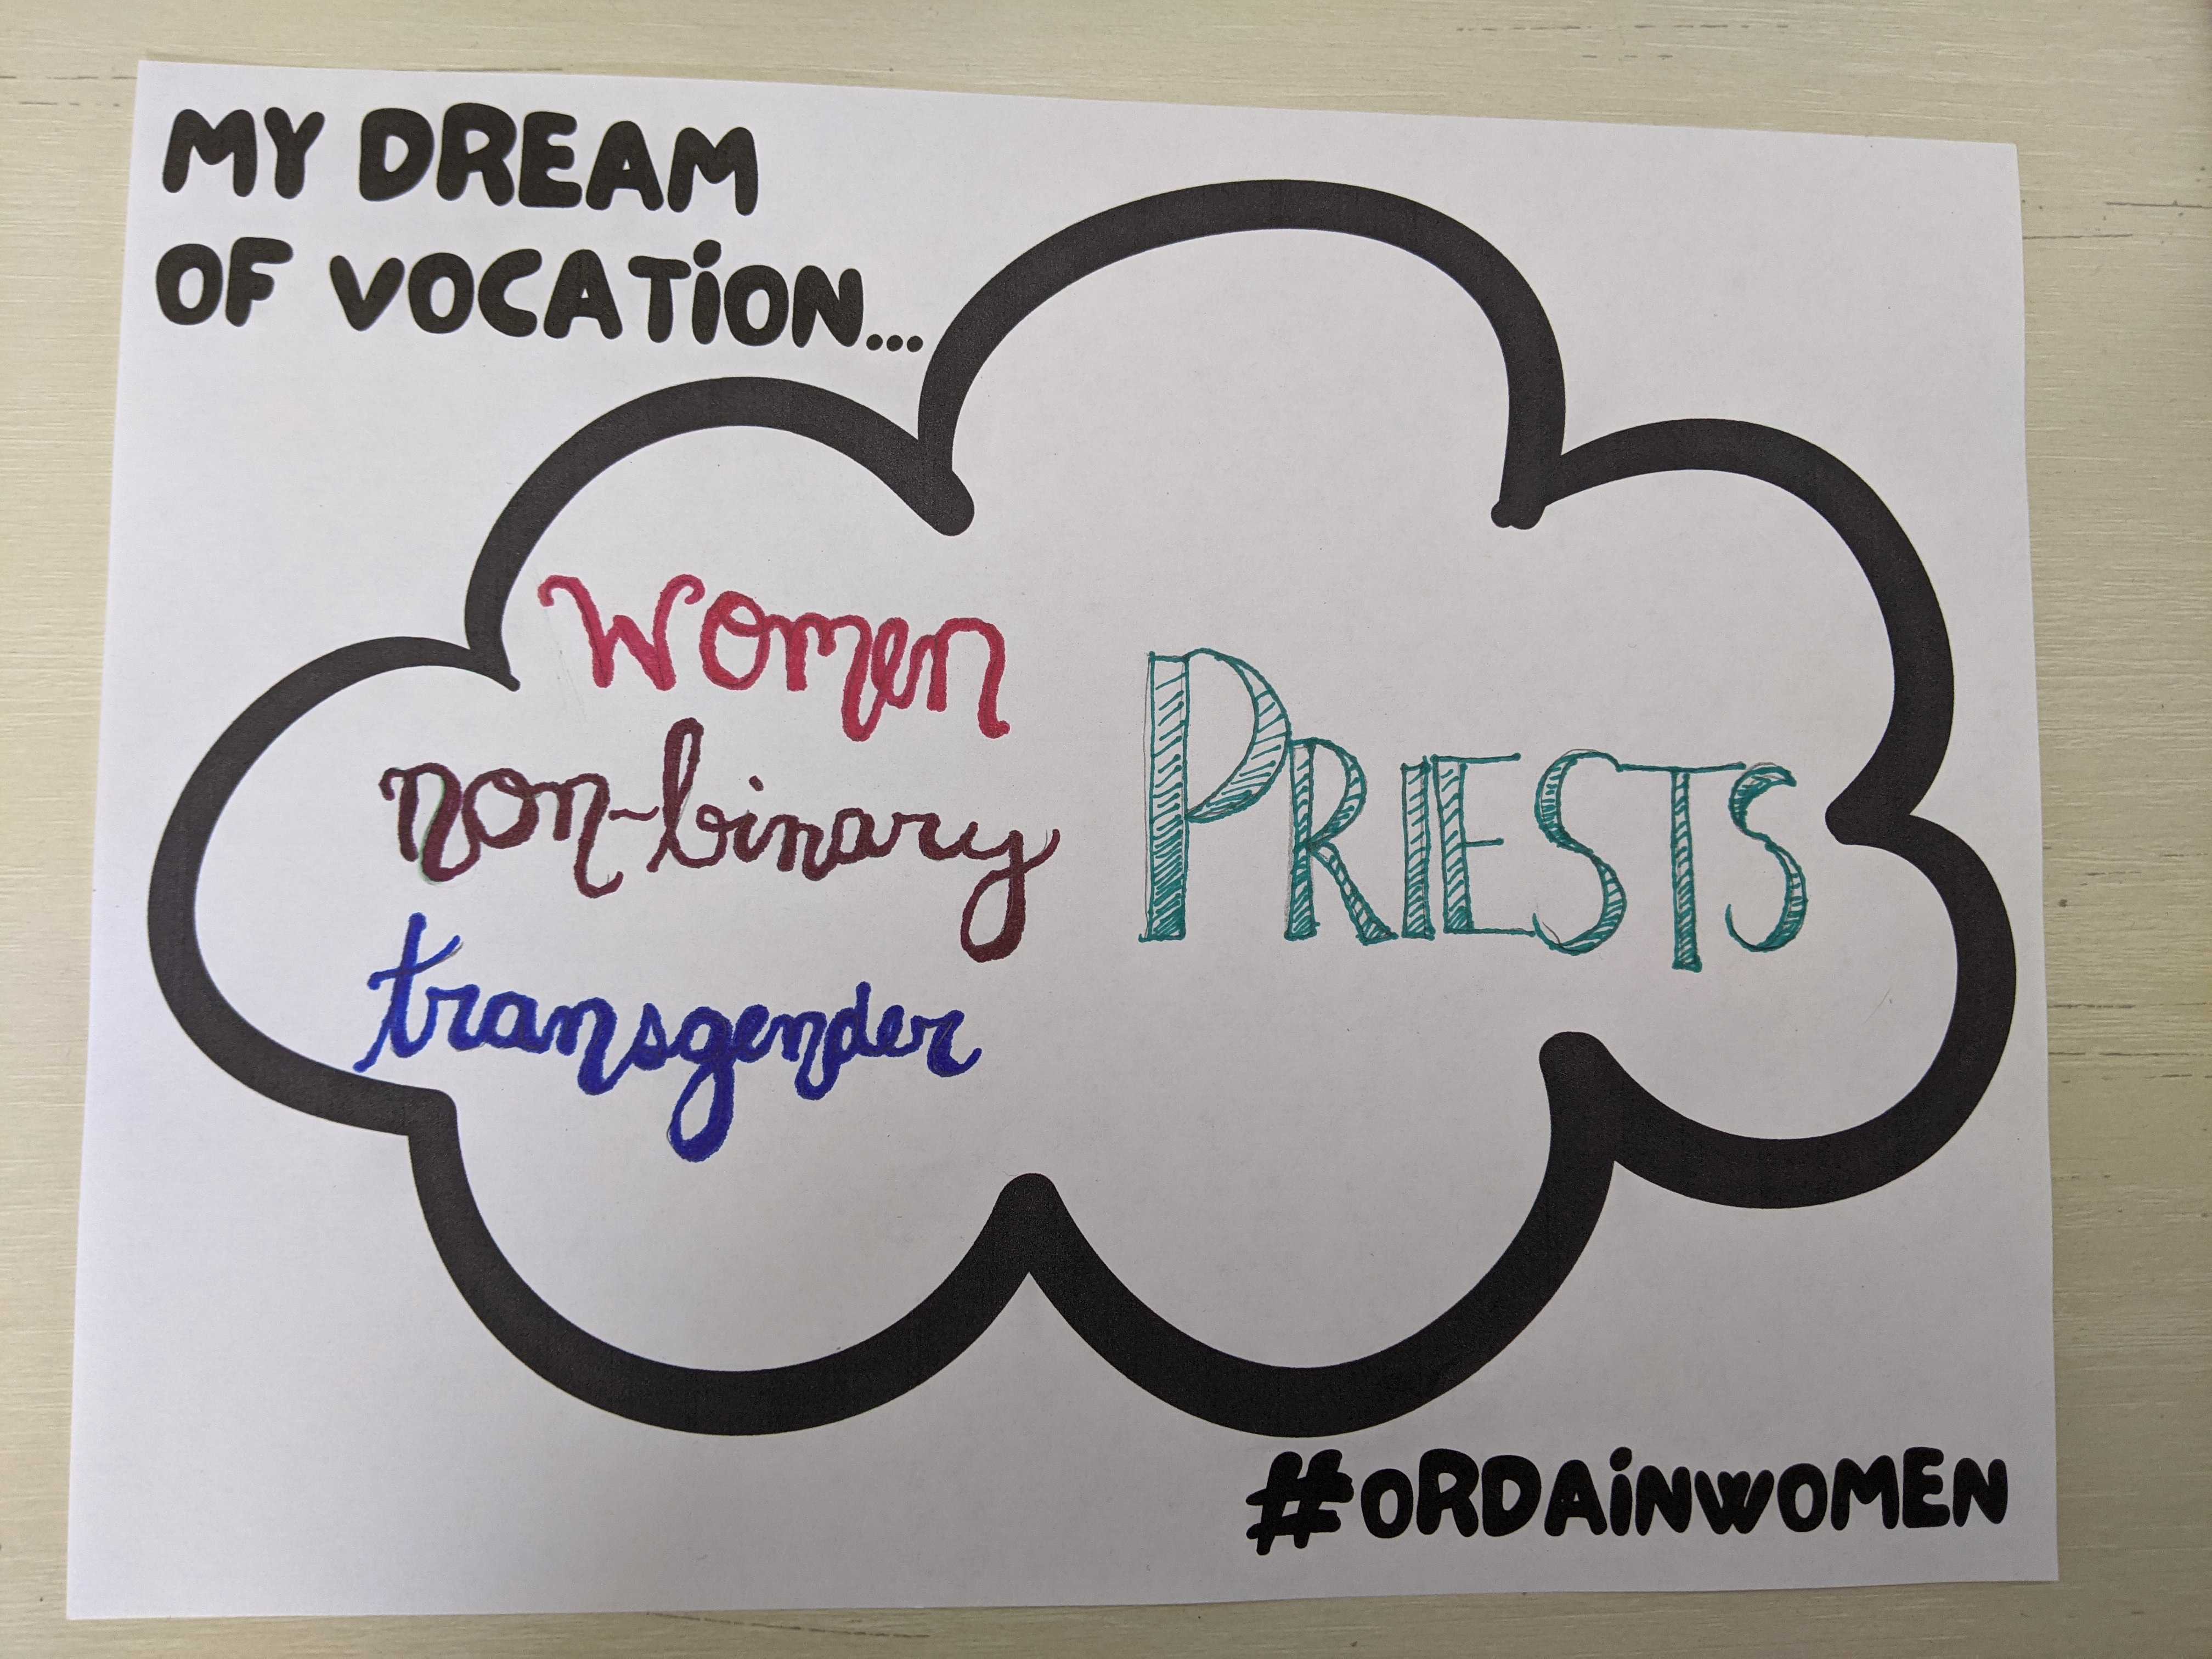 MY DREAM
OF VOCATiON...
Women
non-binary
transgender
PRIESTS
#ORDAiNWOMEN